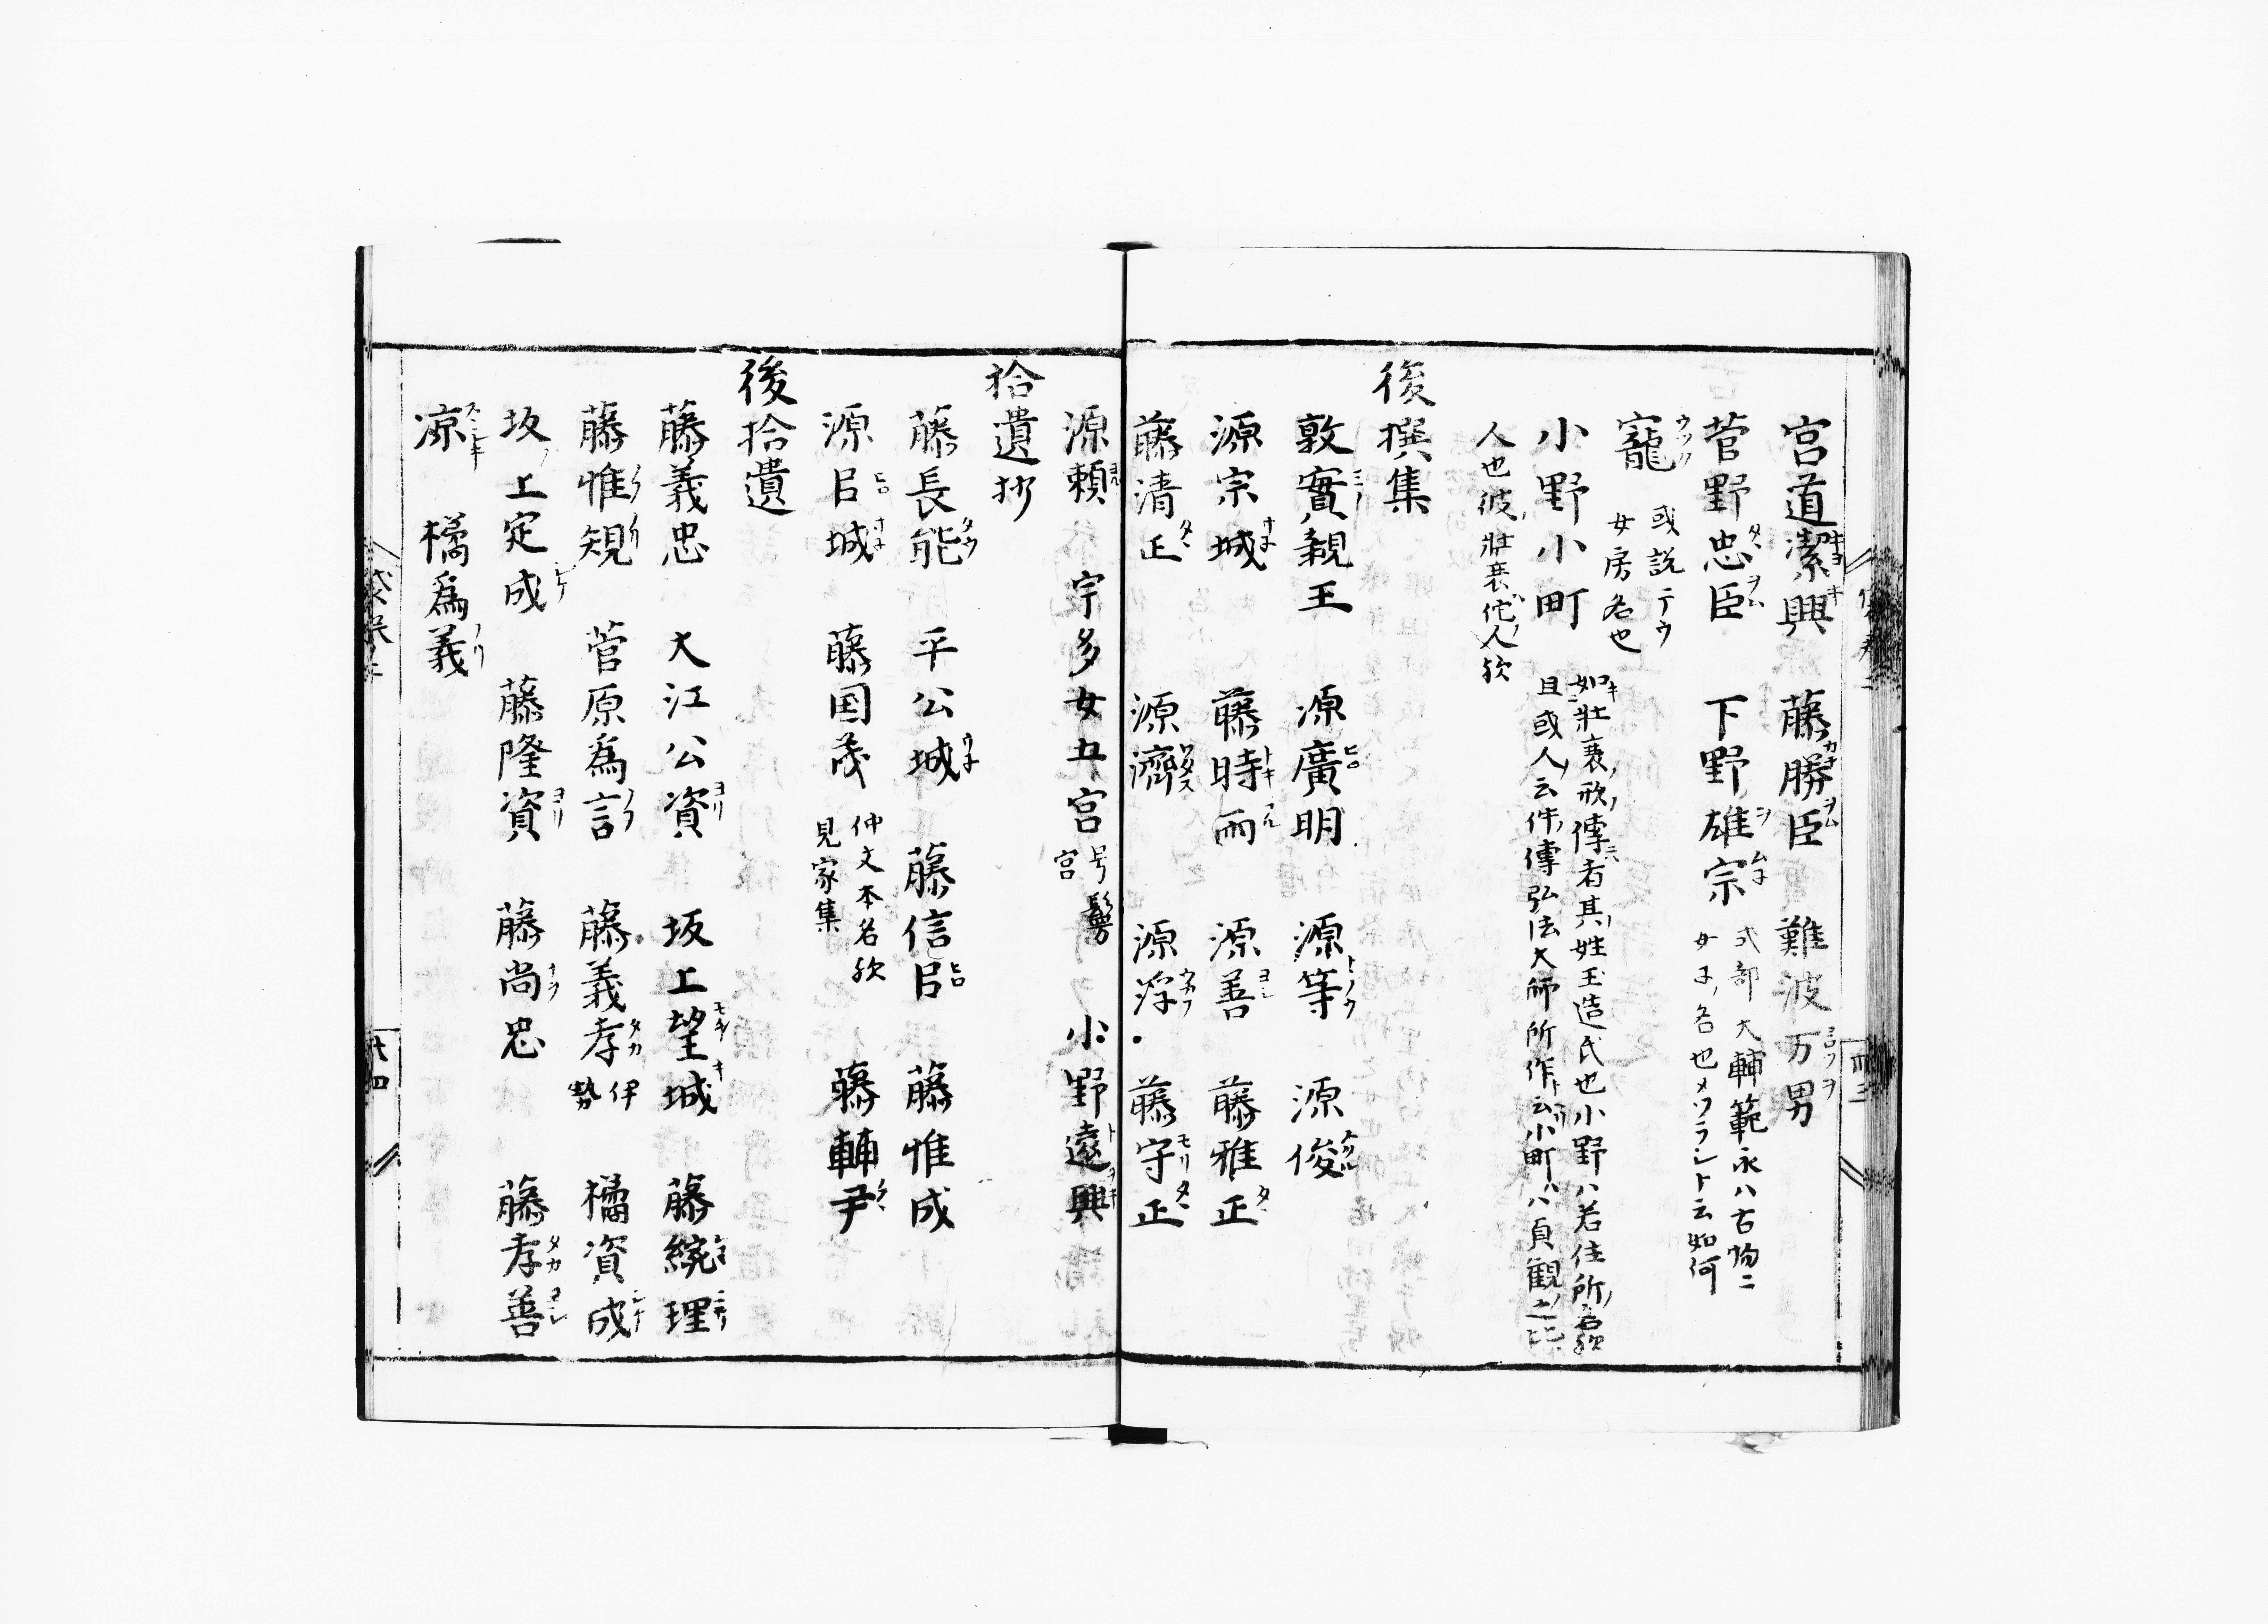 宮道潔興　藤勝臣　難波万男
菅野忠臣　下野雄宗　式部大輔範永ハ古物ニ
女子ノ名也メツラシト云如何
寵　或説ニテウ
女房名也
小野小町　如壮衰形傳者其姓玉造氏也小野ハ若住所ノ名歟
且或人云件傳弘法大師所作ト云小町ハ貞観之比
人也彼壮衰佗人歟
後撰集
敦實親王　源廣明　源等　源俊
源宗城　藤時雨　源善　藤雅正
藤清正　源濟　源浮　藤守正
源頼　宇多女五宮　号鬘
宮　小野遠興
拾遺抄
藤長能　平公城　藤信㠯　藤惟成
源㠯城　藤国茂　仲文本名歟
見家集　藤輔尹
後拾遺
藤義忠　大江公資　坂上望城　藤統理
藤惟規　菅原為言　藤義孝　伊
勢　橘資成
坂上定成　藤隆資　藤尚忠　藤孝善
凉　橘爲義